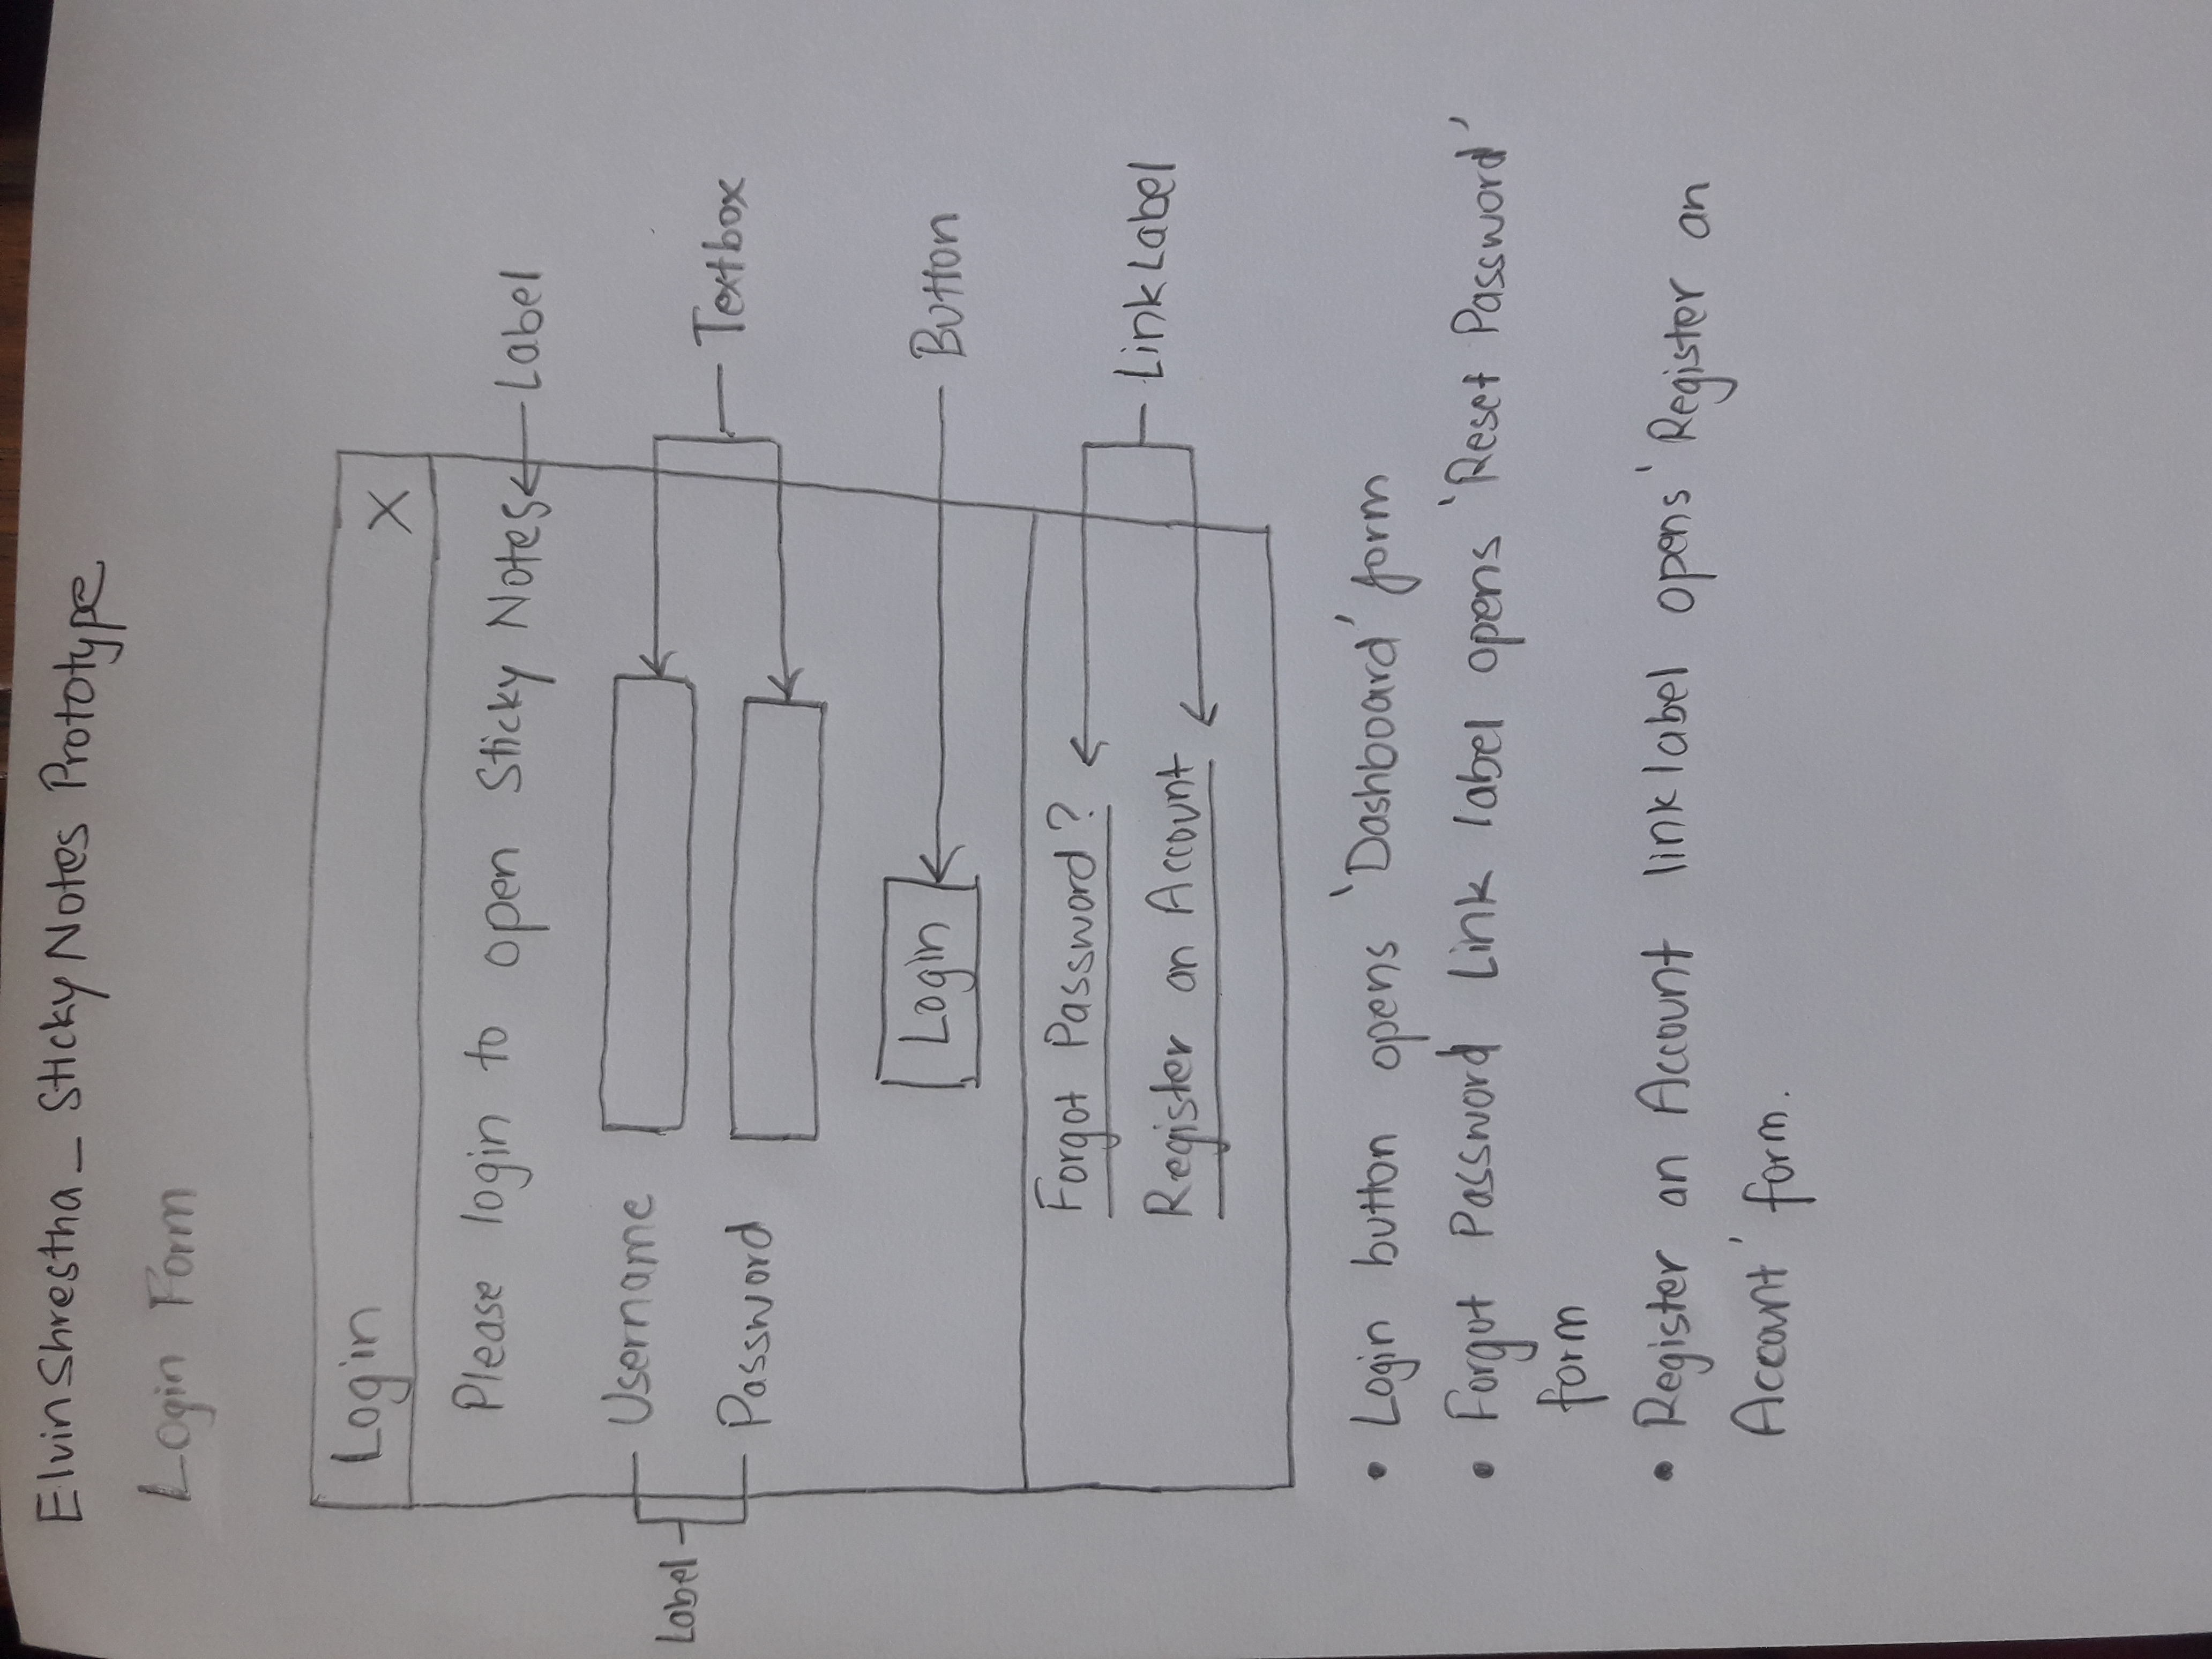 Elvin Shrestha_ Sticky Notes Prototype
Login Form
Login X
Please login to open Sticky Notes Label
Username
Label
Textbox
Password
Login Button
Forgot Password?
Link Label
Register an Account
• Login button opens 'Dashboard' form
• Forgot Password Link label opens 'Reset Password'
form
• Register an Account link label opens 'Register an
Account' form.